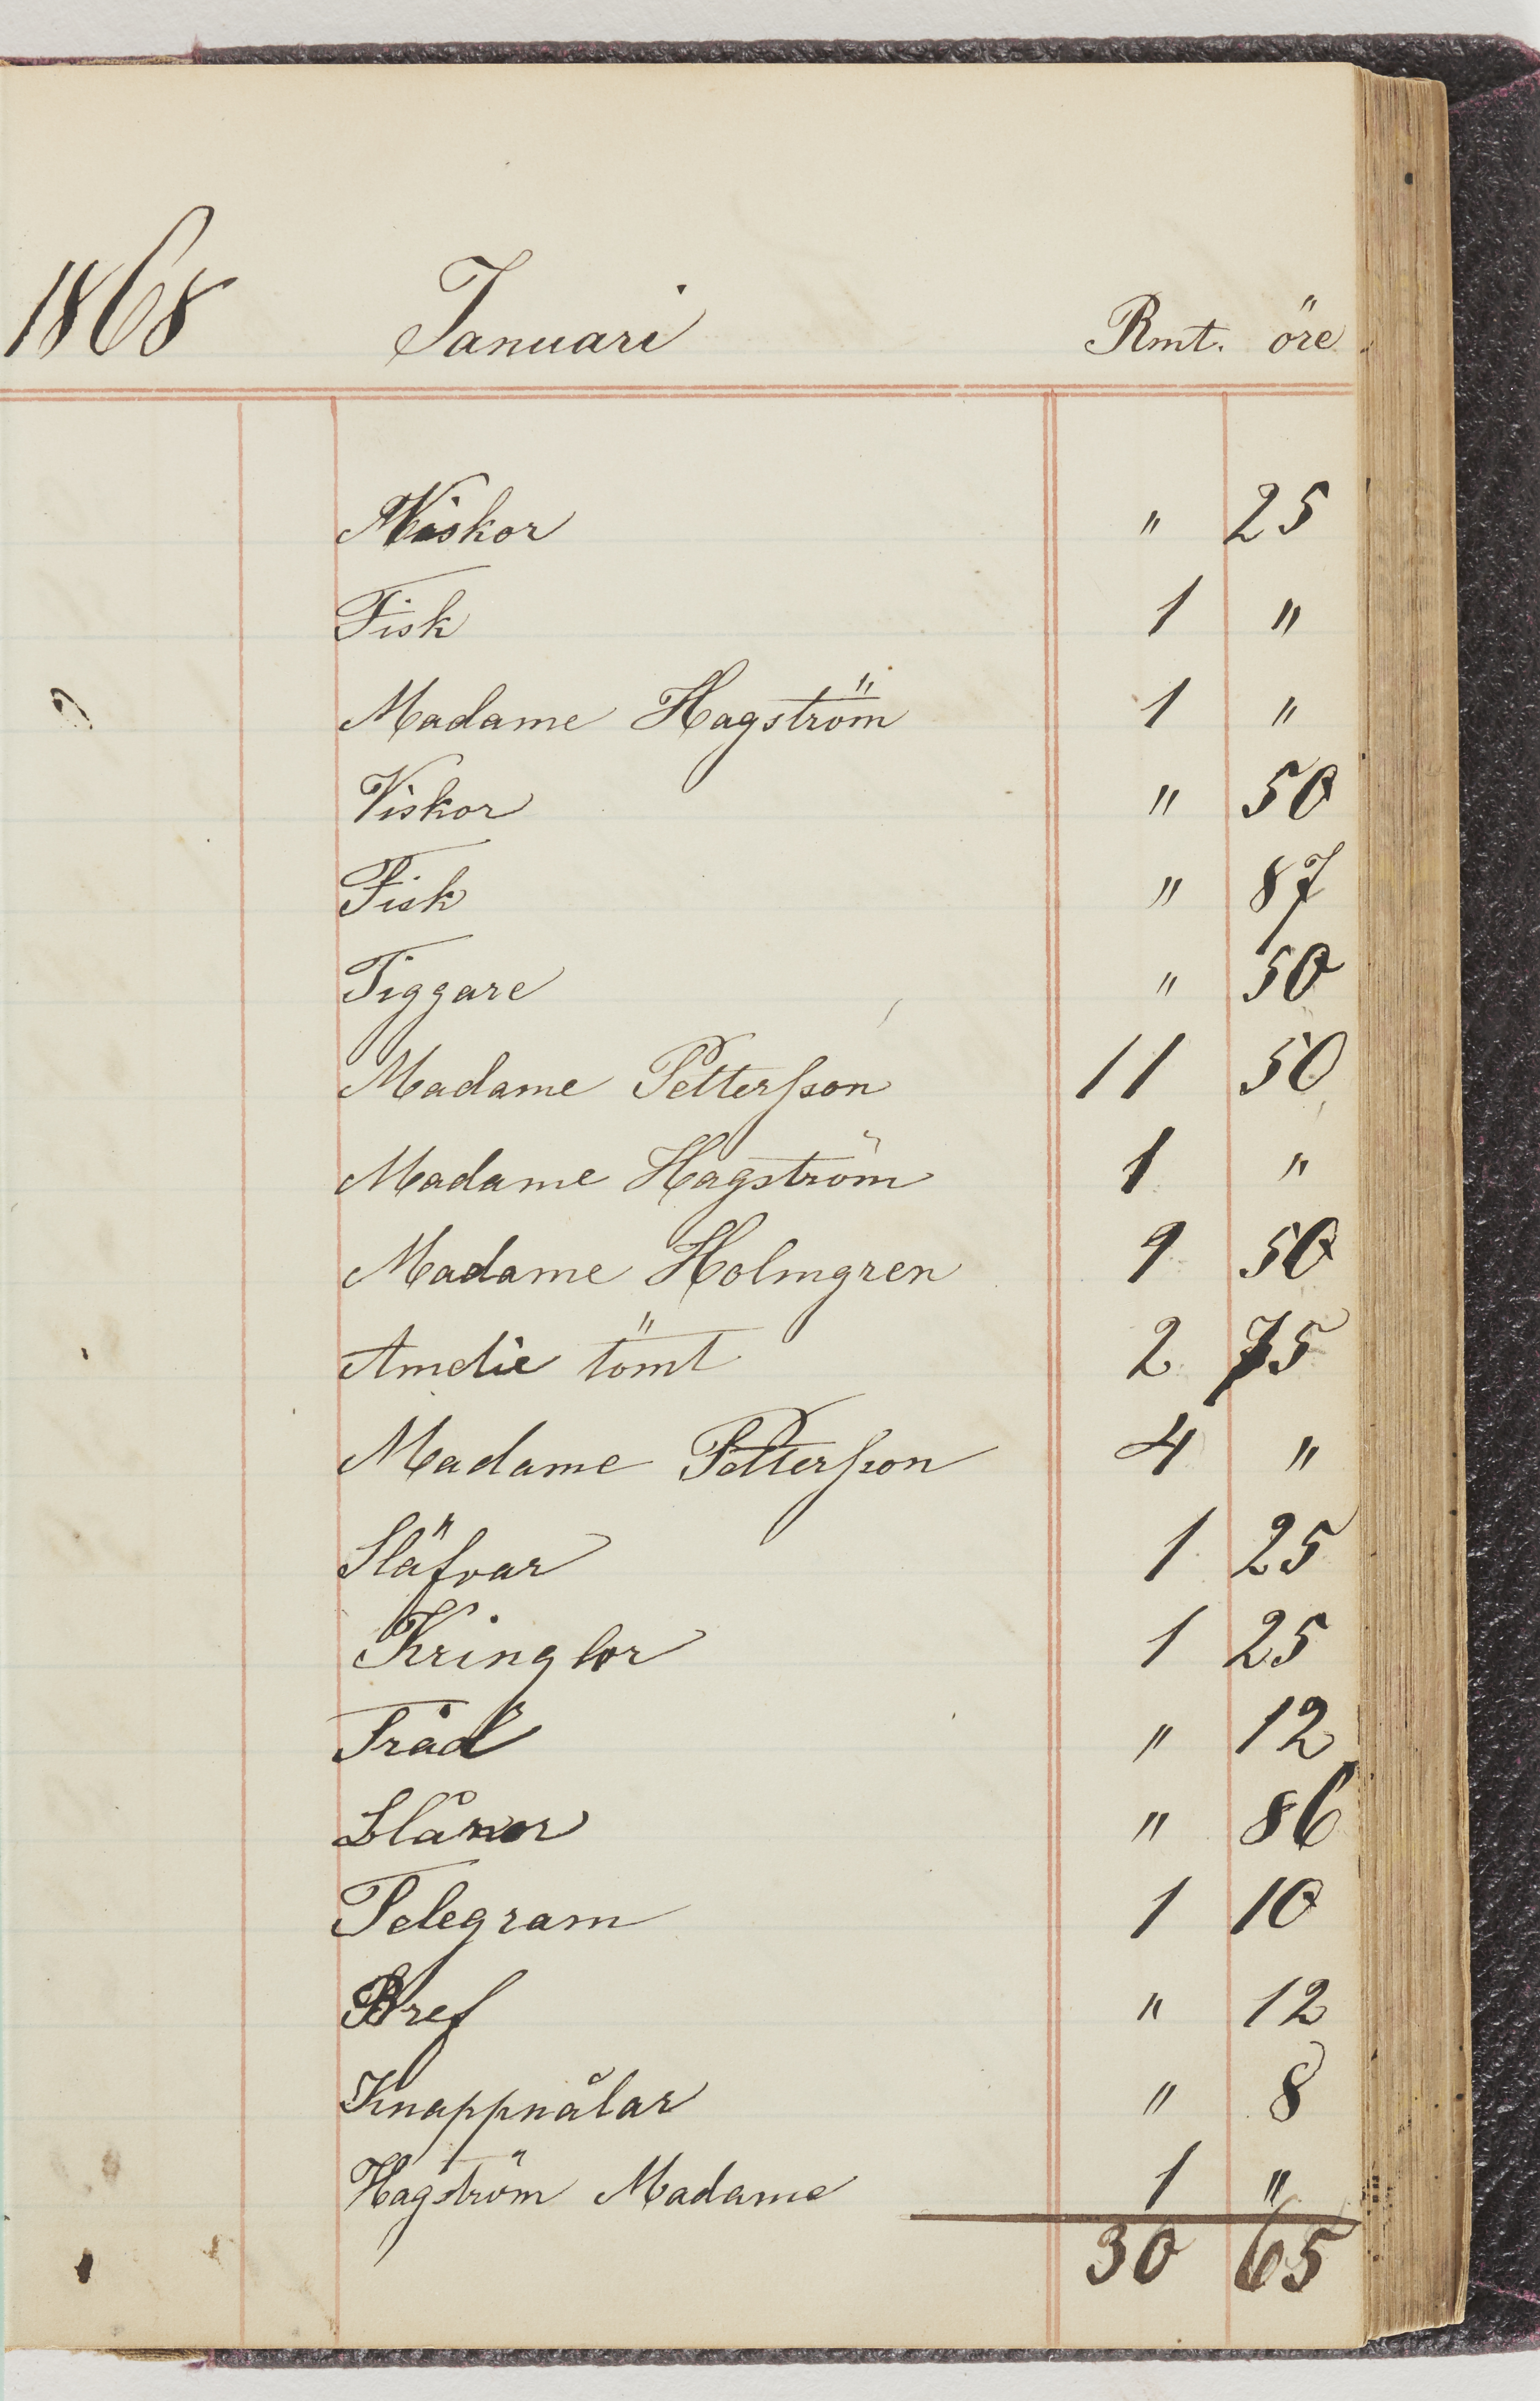 1868 Januari Rmt. öre
Viskor " 25
Fisk 1 "
Madame Hagström 1 "
Viskor " 50
Fisk " 87
Tiggare " 50
Madame Pettersson 11 50
Madame Hagström 1 "
Madame Holmgren 1 50
Amelie tömt 2 75
Madame Pettersson 4 "
Släfvar 1 25
Kringlor 1 25
Tråd " 12
Blånor " 86
Telegram 1 10
Bref " 12
Knappnålar " 8
Hagström Madame 1 "
30 65